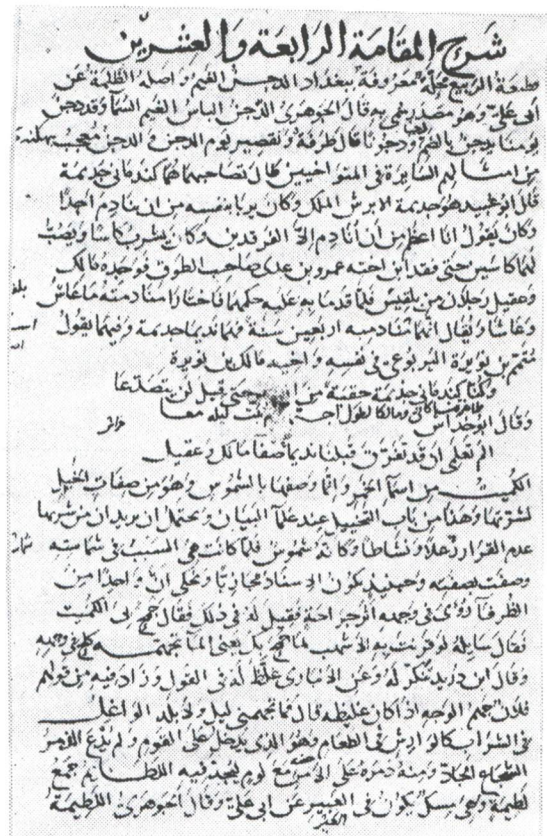 شرح المقامة الرابعة والعشرين
قطيعة الربيع محلة معروفة ببغداد الدجن الغيم واصله الظلمة عن
ابى على وهو مصدر وقال الجوهرى الدجن الباس الغيم السما وقد دجن
يومنا يدجن بالضم دجنا ودجونا قال طرفة وتقصير يوم الدجن والدجن معجب ببهكنة
من امثالهم السايرة فى المتواخيين طال تصاحبهما هما كندمانى جذيمة
قال ابو عبيد هو جذيمة الابرش الملك وكان يربا بنفسه من ان ينادم احدا
وكان يقول انا اعظم من ان أنادم الا الفرقدين وكان يشرب كاسا ويصب
لهما كاسين حتى فقد ابن اخته عمرو بن عدى صاحب الطوق فوجده مالك
وعقيل رجلان من بلقين فلما قدما به عليه حكمهما فاختارا منادمته ما عاش
وعاشا ويقال انهما نادمه اربعين سنة فهما نديما جذيمة وفيهما يقول
متمم بن نويرة اليربوعى فى نفسه واخيه مالك بن نويرة
وكنا كندمانى جذيمة حقبة من الدهر حتى قيل لن يتصدعا
فلما تفرقنا كانى ومالكا لطول اجتماع لم نبت ليلة معا
وقال ابو خراش
الم تعلمى ان قد تفرق قبلنا نديما صفا مالك وعقيل
الكميت من اسما الخمر وانما وصفها بالشموس وهو من صفات الخيل
لسورتها وهذا من باب التخييل عند علما البيان ويحتمل ان يريد ان من شربها
عدم القرار نزقا ونشاطا وكانه شموس فلما كانت هى السبب فى شماسته
وصفت بصفته وحينئذ يكون الاسناد مجازيا ويحكى ان واحدا من
الظرفا راى فى وجهه الوجز احة فقيل له فى ذلك فقال جمح بى الكميت
فقال سايله لو قرنت به الاشهب لما جمح بك يعنى الما تجهمته كلح فى وجهه
وقال ابن دريد تنكر له وعن الانبارى غلظ له فى القول وزاد فيه من قولهم
فلان جهم الوجه اذا كان غليظه قال فما تجهمنى ليل ولا بلد الواغل
فى الشراب كالوارش فى الطعام وهو الذى يدخل على القوم ولم يدع
الشعاع الحاد ومنه اللطايم جمع
لطيمة وهى مسك يكون فى العير عن ابى على وقال الجوهرى اللطيمة
العير